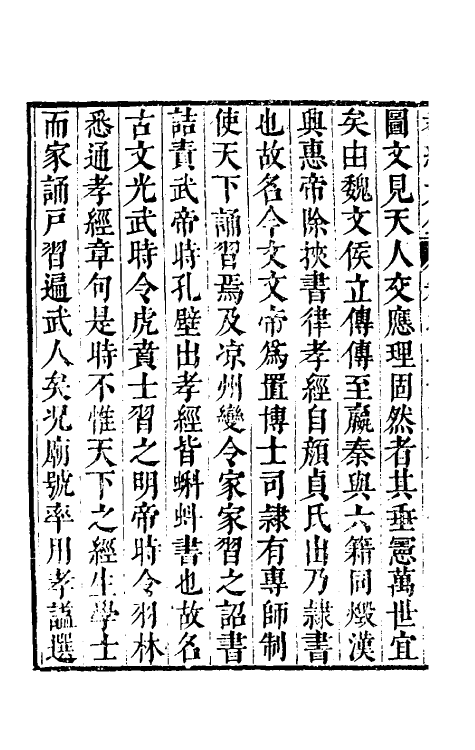 圖文見天人交應理固然者其垂憲萬世宜
矣由魏文侯立傳傳至嬴秦與六籍同燬漢
興惠帝除挾書律孝經自顏貞氏出乃隸書
也故名今文文帝爲置博士司隸有專師制
使天下誦習焉及凉州變令家家習之詔書
詰責武帝時孔壁出孝經皆蝌蚪書也故名
古文光武時令虎賁士習之明帝時令羽林
悉通孝經章句是時不惟天下之經生學士
而家誦戸習遍武人矣況廟號率用孝謚選